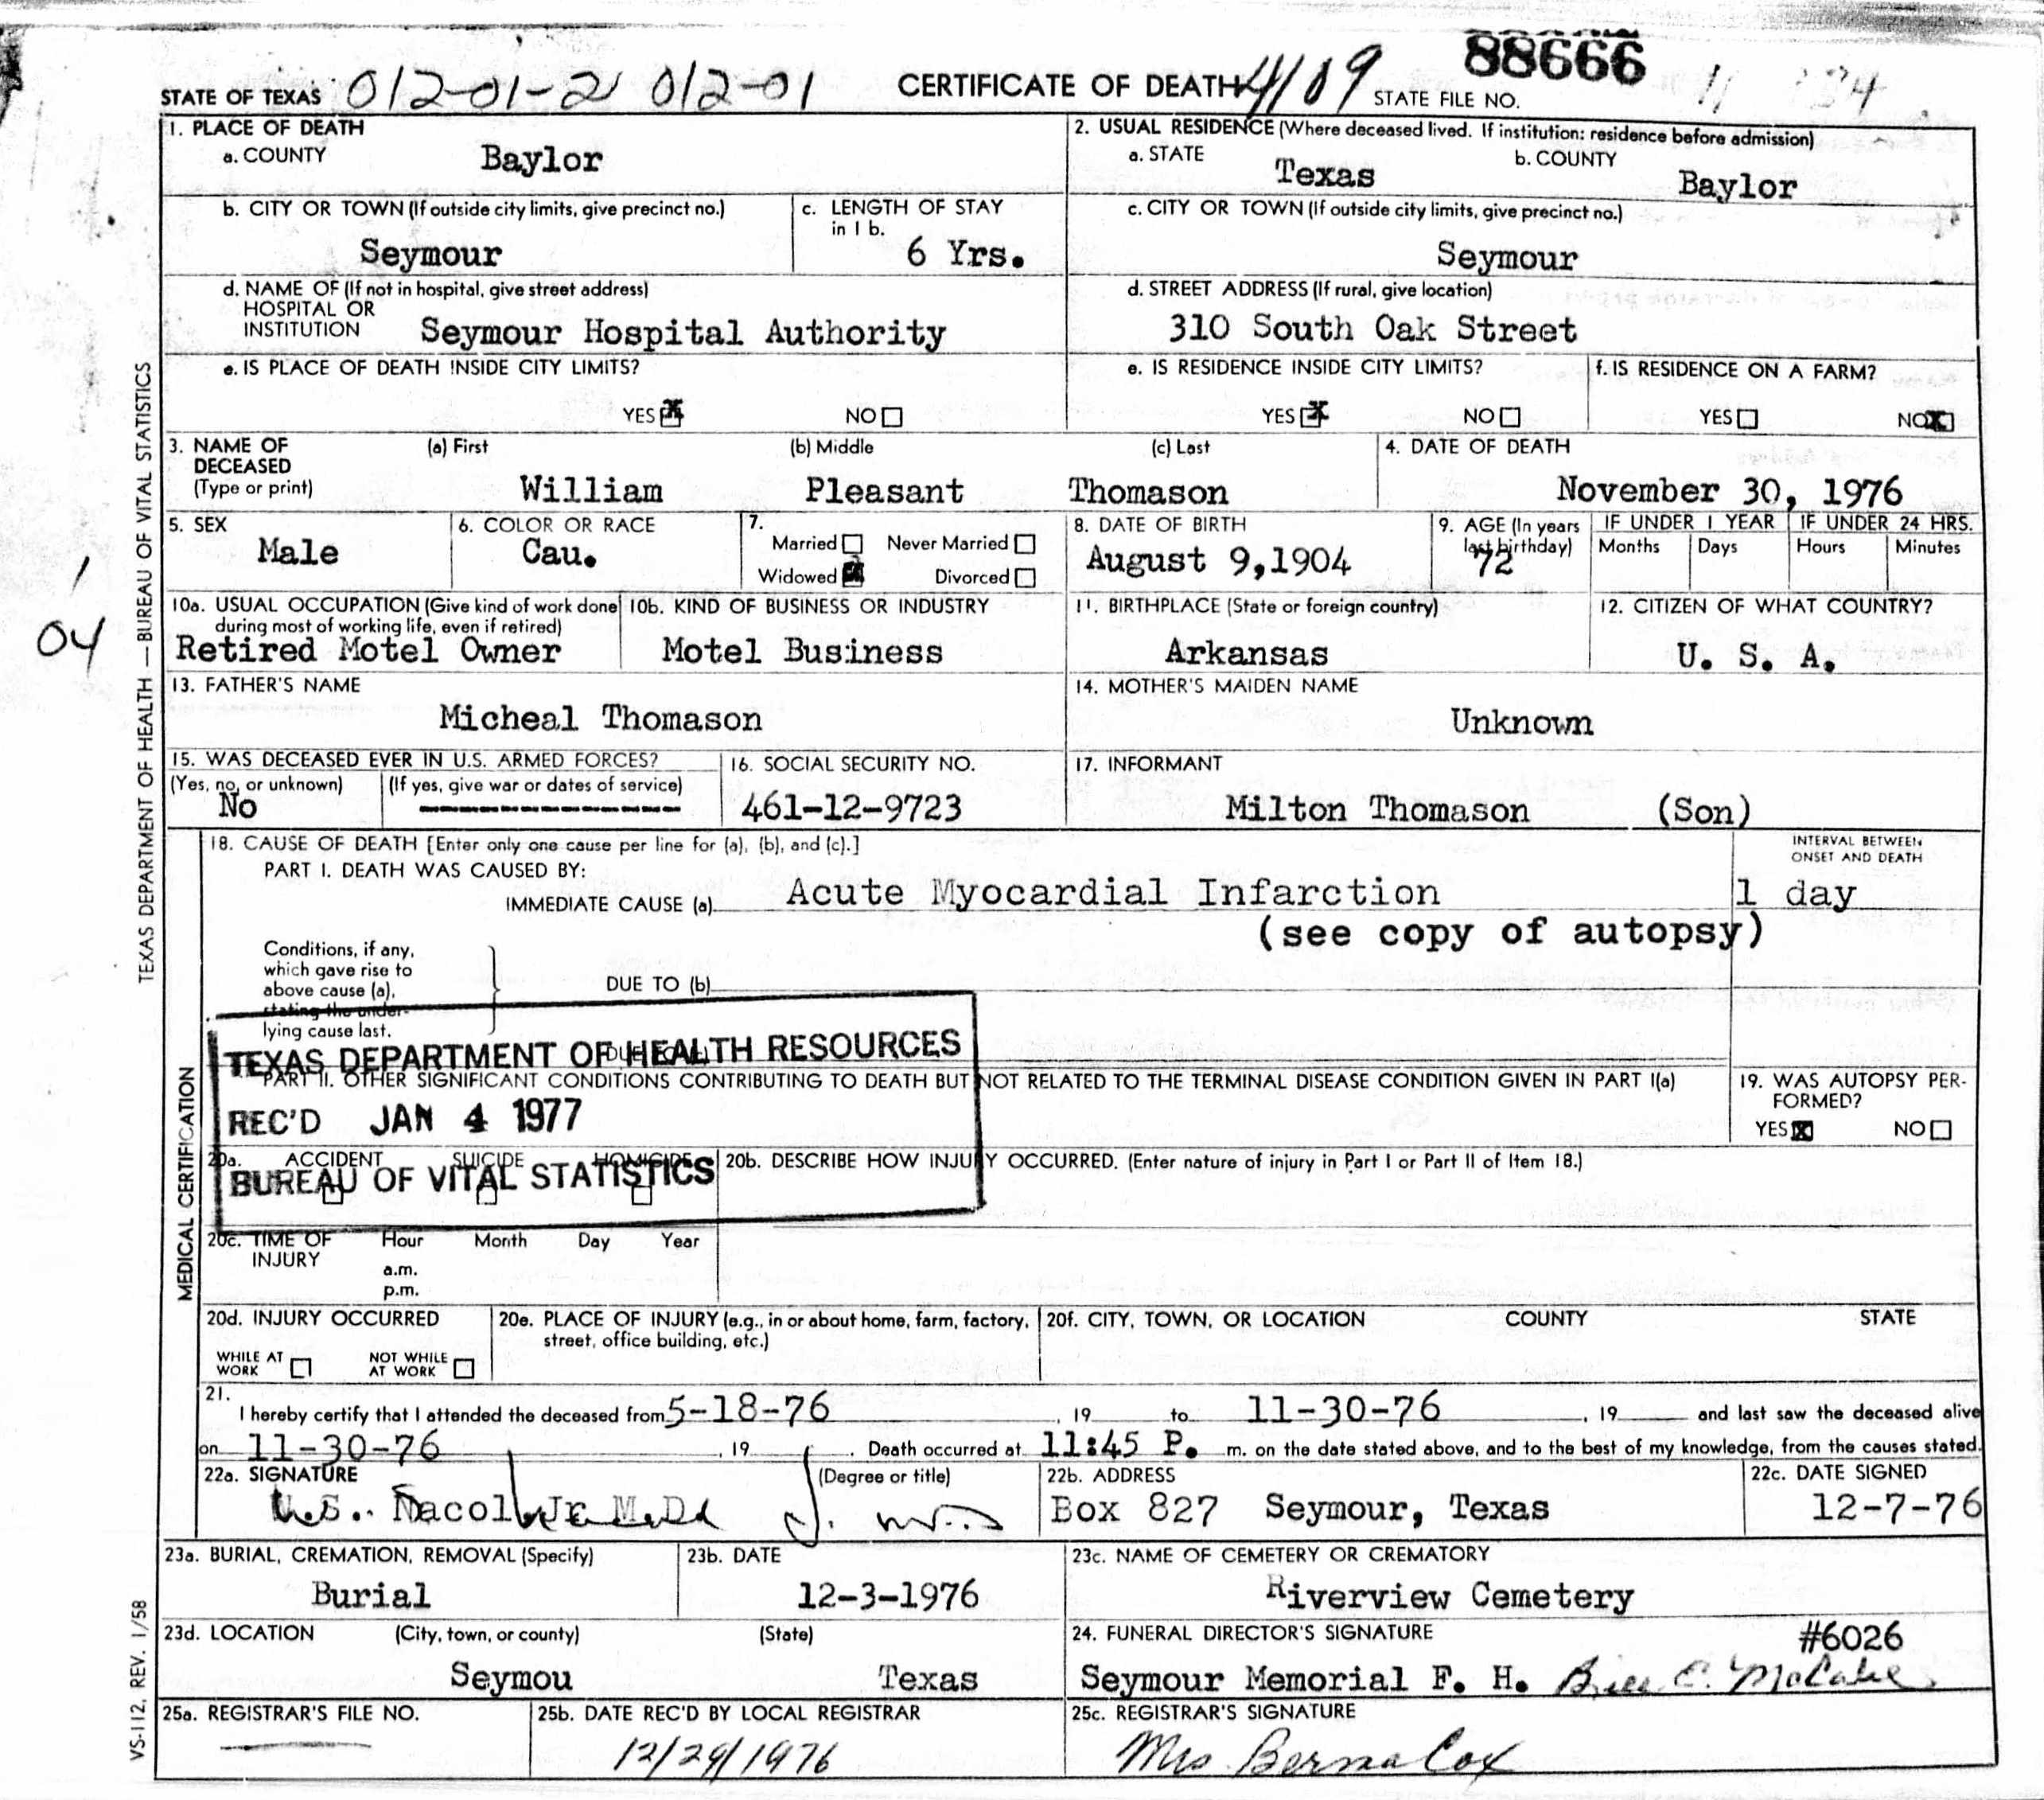 STATE OF TEXAS 012-01-2 012-01 CERTIFICATE OF DEATH 4109 STATE FILE NO. 88666
1. PLACE OF DEATH
a. COUNTY Baylor
2. USUAL RESIDENCE (Where deceased lived. If institution: residence before admission)
a. STATE Texas b. COUNTY Baylor
b. CITY OR TOWN (If outside city limits, give precinct no.) Seymour
c. LENGTH OF STAY in 1 b. 6 Yrs.
c. CITY OR TOWN (If outside city limits, give precinct no.) Seymour
d. NAME OF (If not in hospital, give street address)
HOSPITAL OR
INSTITUTION Seymour Hospital Authority
d. STREET ADDRESS (If rural, give location)
310 South Oak Street
e. IS PLACE OF DEATH INSIDE CITY LIMITS?
YES X NO
e. IS RESIDENCE INSIDE CITY LIMITS?
YES X NO
f. IS RESIDENCE ON A FARM?
YES NO X
3. NAME OF DECEASED (Type or print)
(a) First William (b) Middle Pleasant (c) Last Thomason
4. DATE OF DEATH
November 30, 1976
5. SEX Male
6. COLOR OR RACE Cau.
7. Married Never Married
Widowed X Divorced
8. DATE OF BIRTH August 9,1904
9. AGE (In years last birthday) 72
IF UNDER 1 YEAR Months Days
IF UNDER 24 HRS. Hours Minutes
10a. USUAL OCCUPATION (Give kind of work done during most of working life, even if retired)
Retired Motel Owner
10b. KIND OF BUSINESS OR INDUSTRY
Motel Business
11. BIRTHPLACE (State or foreign country)
Arkansas
12. CITIZEN OF WHAT COUNTRY?
U. S. A.
13. FATHER'S NAME
Micheal Thomason
14. MOTHER'S MAIDEN NAME
Unknown
15. WAS DECEASED EVER IN U.S. ARMED FORCES?
(Yes, no, or unknown) No
(If yes, give war or dates of service) ----------------
16. SOCIAL SECURITY NO.
461-12-9723
17. INFORMANT
Milton Thomason (Son)
18. CAUSE OF DEATH [Enter only one cause per line for (a), (b), and (c).]
INTERVAL BETWEEN ONSET AND DEATH
PART I. DEATH WAS CAUSED BY:
IMMEDIATE CAUSE (a) Acute Myocardial Infarction 1 day
(see copy of autopsy)
Conditions, if any,
which gave rise to
above cause (a),
stating the under-
lying cause last.
DUE TO (b)
TEXAS DEPARTMENT OF HEALTH RESOURCES
REC'D JAN 4 1977
BUREAU OF VITAL STATISTICS
PART II. OTHER SIGNIFICANT CONDITIONS CONTRIBUTING TO DEATH BUT NOT RELATED TO THE TERMINAL DISEASE CONDITION GIVEN IN PART I(a)
19. WAS AUTOPSY PER-
FORMED?
YES X NO
20a. ACCIDENT SUICIDE HOMICIDE
20b. DESCRIBE HOW INJURY OCCURRED. (Enter nature of injury in Part I or Part II of Item 18.)
20c. TIME OF INJURY Hour Month Day Year
a.m.
p.m.
20d. INJURY OCCURRED
WHILE AT WORK NOT WHILE AT WORK
20e. PLACE OF INJURY (e.g., in or about home, farm, factory, street, office building, etc.)
20f. CITY, TOWN, OR LOCATION COUNTY STATE
21.
I hereby certify that I attended the deceased from 5-18-76, 19 to 11-30-76, 19 and last saw the deceased alive
on 11-30-76, 19. Death occurred at 11:45 P. m. on the date stated above, and to the best of my knowledge, from the causes stated.
22a. SIGNATURE (Degree or title)
Nacol
22b. ADDRESS
Box 827 Seymour, Texas
22c. DATE SIGNED
12-7-76
23a. BURIAL, CREMATION, REMOVAL (Specify)
Burial
23b. DATE
12-3-1976
23c. NAME OF CEMETERY OR CREMATORY
Riverview Cemetery
23d. LOCATION (City, town, or county) (State)
Seymou Texas
24. FUNERAL DIRECTOR'S SIGNATURE #6026
Seymour Memorial F. H. Bill C. McCabe
25a. REGISTRAR'S FILE NO.
25b. DATE REC'D BY LOCAL REGISTRAR
12/29/1976
25c. REGISTRAR'S SIGNATURE
Mrs Berna Cox
TEXAS DEPARTMENT OF HEALTH — BUREAU OF VITAL STATISTICS
MEDICAL CERTIFICATION
VS-112, REV. 1/58
1
04